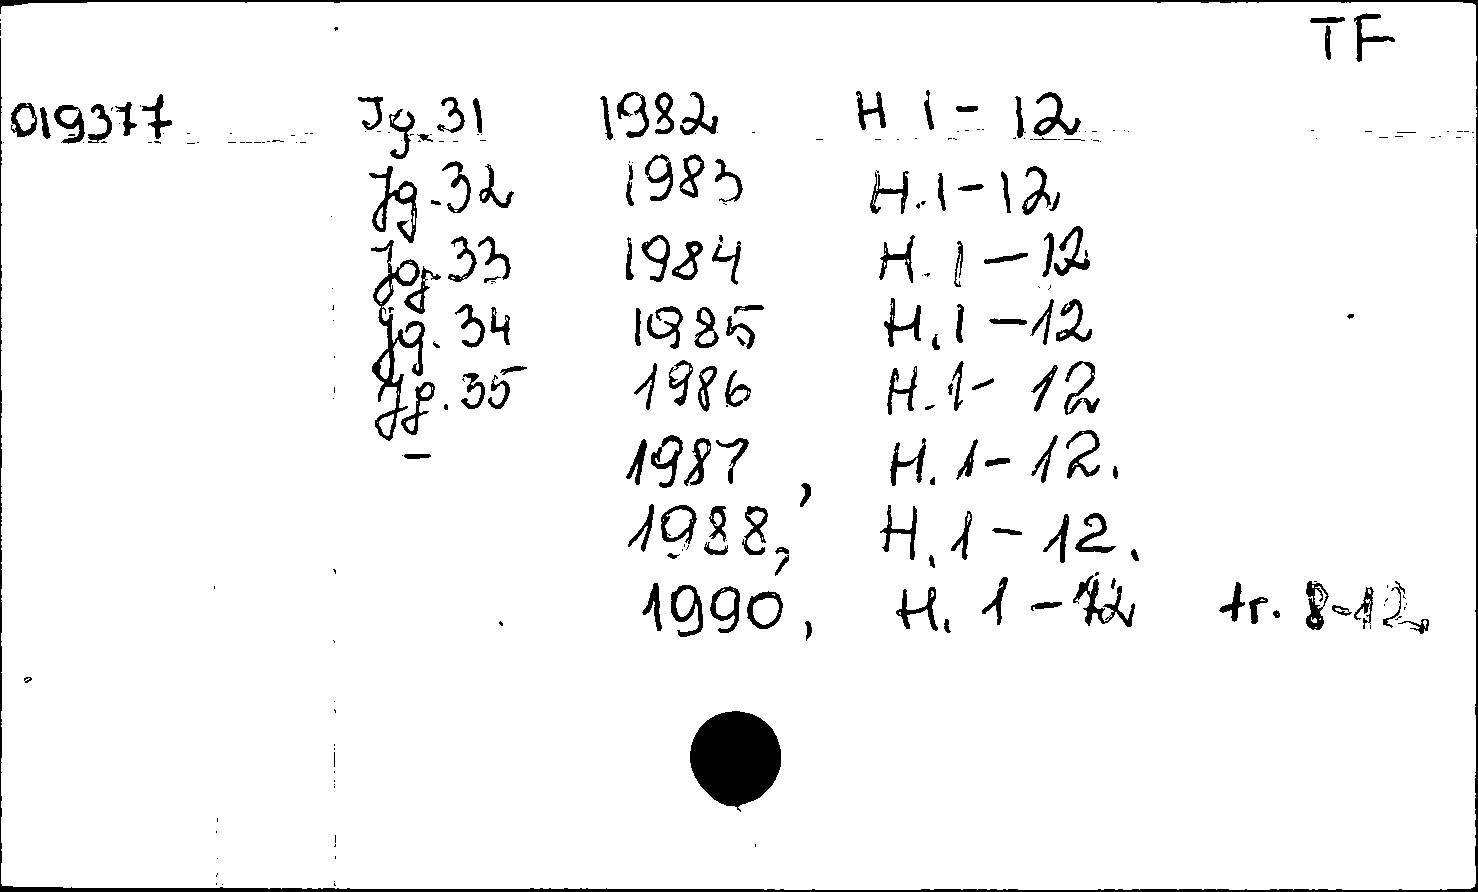 TF
019377 Jg. 31 1982 H 1 - 12
Jg. 32 1983 H. 1 - 12
Jg. 33 1984 H. 1 - 12
Jg. 34 1985 H. 1 - 12
Jg. 35 1986 H. 1 - 12
- 1987, H. 1 - 12.
1988, H. 1 - 12.
1990, H. 1 - 12 tr. 8-12